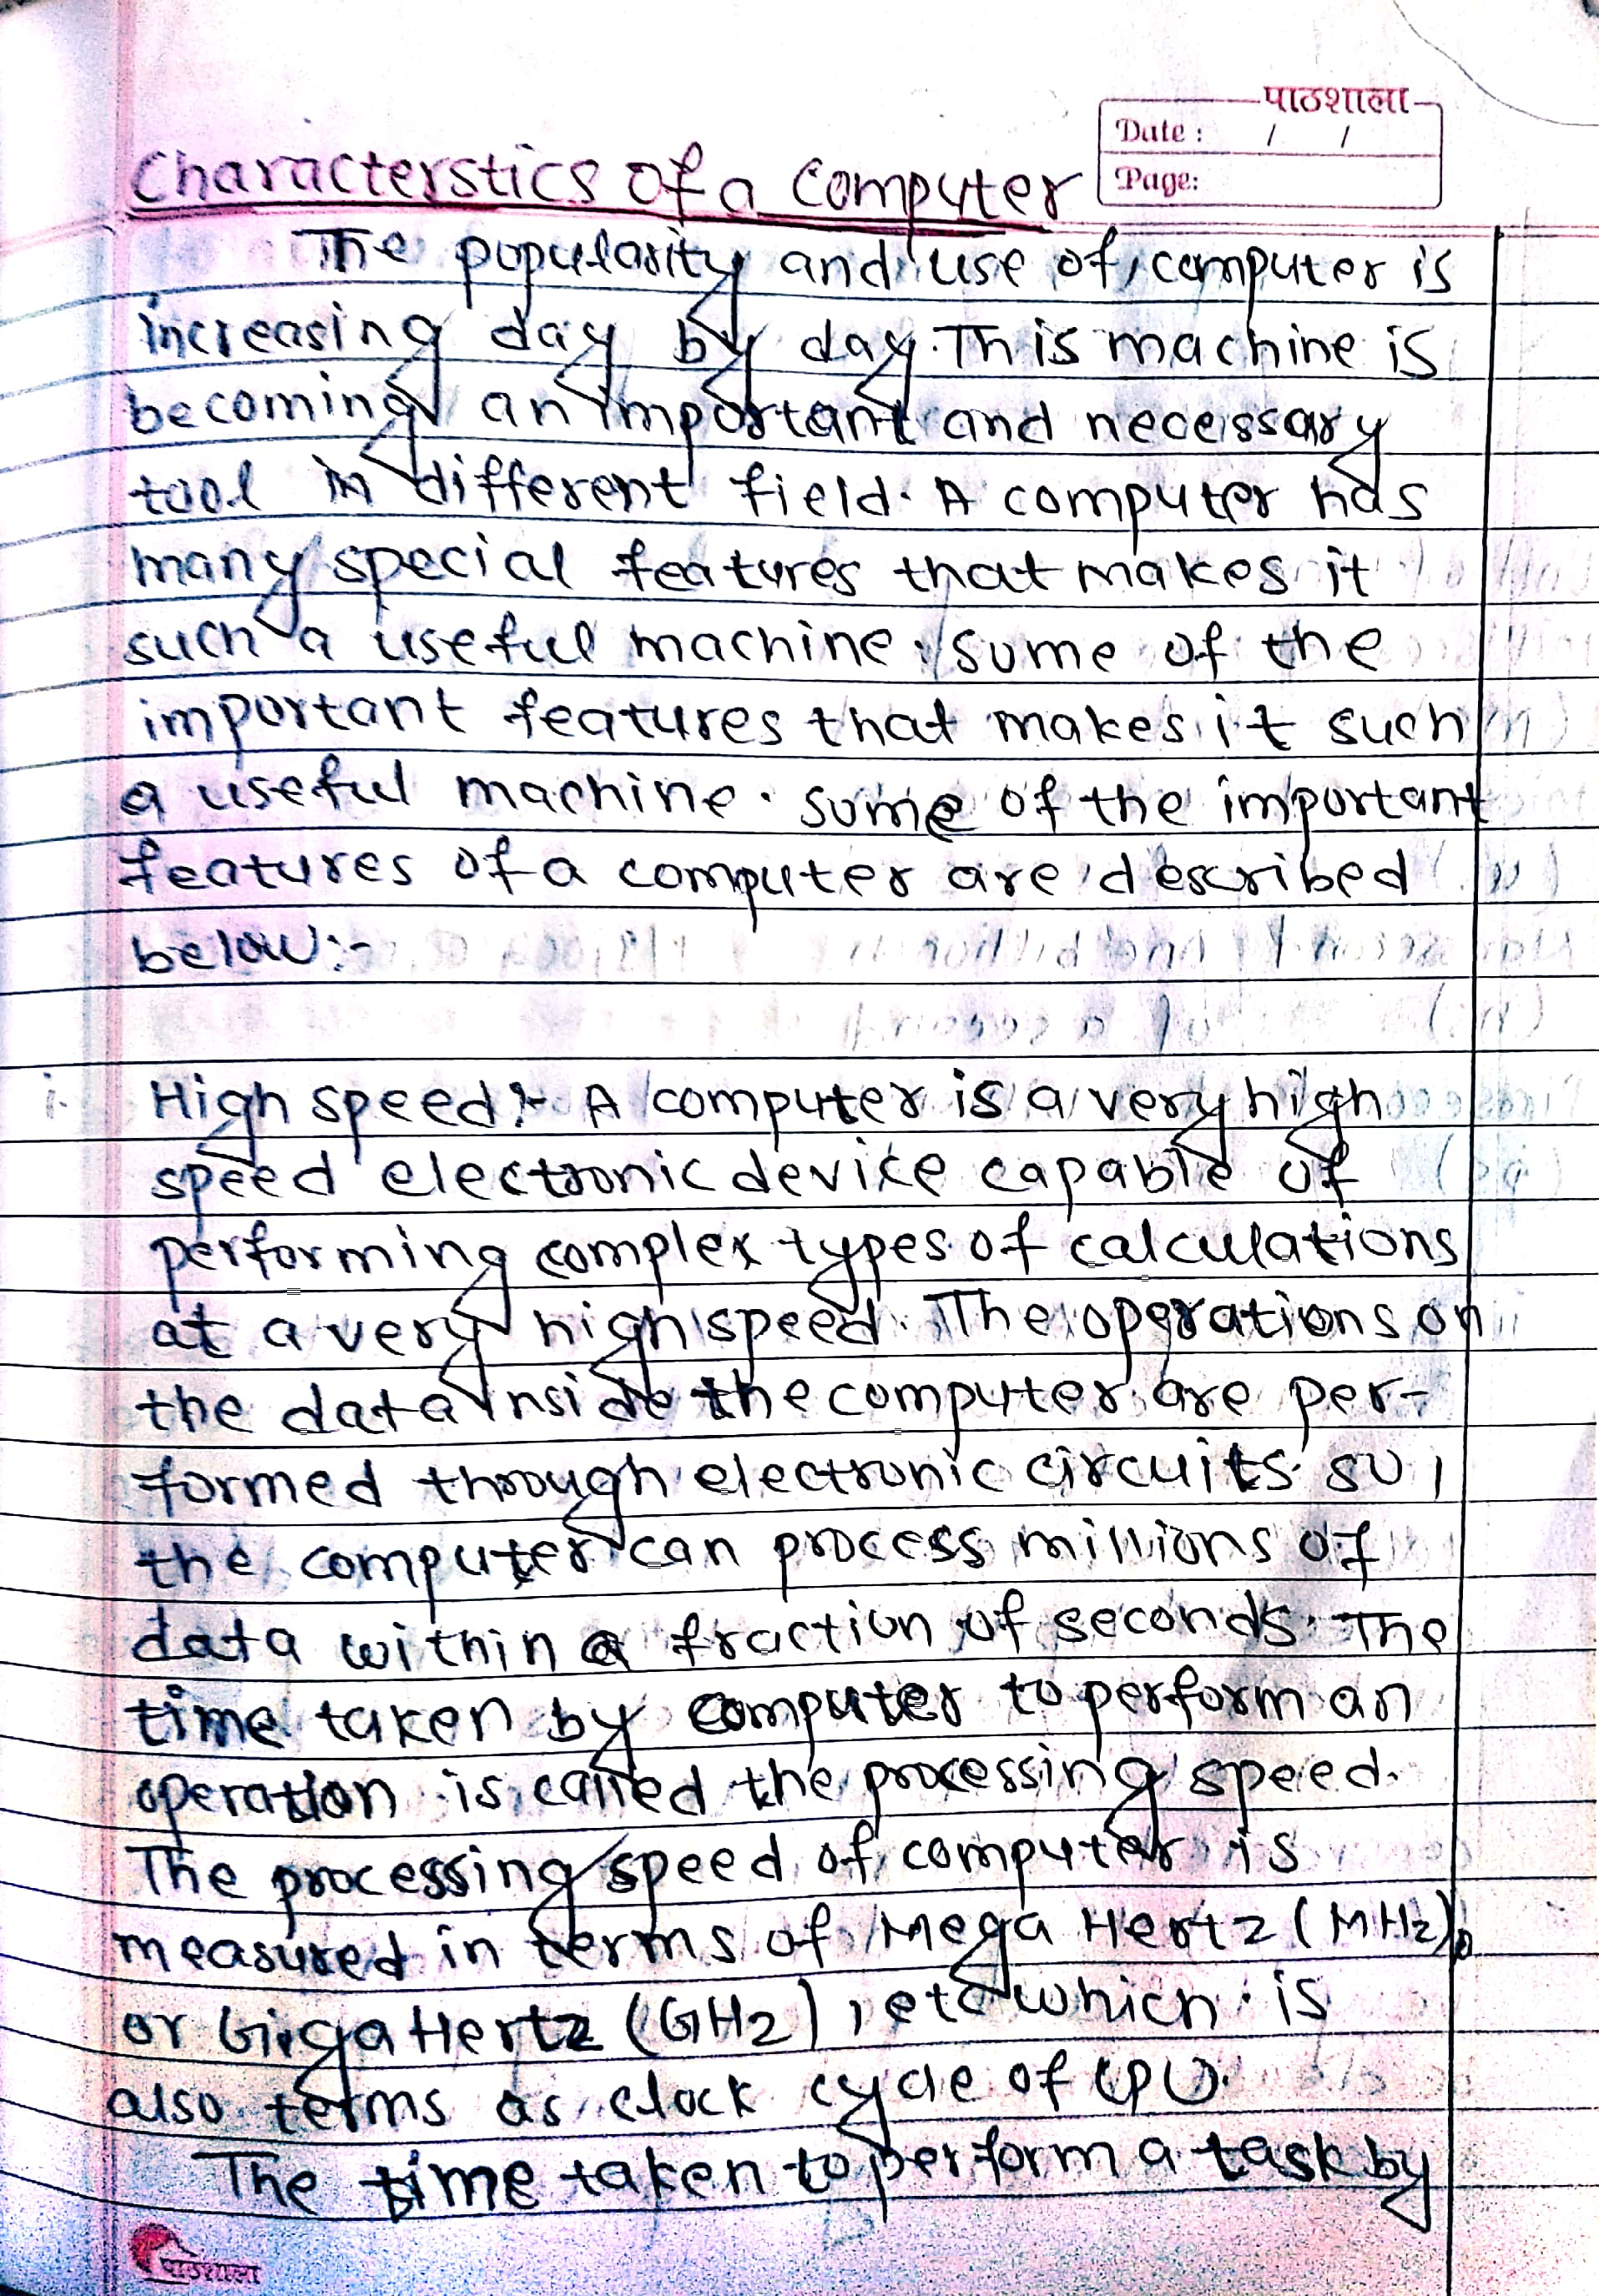 पाठशाला
Date : / /
Page:
Characterstics of a Computer
The popularity and use of computer is
increasing day by day. This machine is
becoming an important and necessary
tool in different field. A computer has
many special features that makes it
such a useful machine. some of the
important features that makes it such
a useful machine. some of the important
features of a computer are described
below:-
i. High speed:- A computer is a very high
speed electronic device capable of
performing complex types of calculations
at a very high speed. The operations on
the data inside the computer are per-
formed through electronic circuits so,
the computer can process millions of
data within a fraction of seconds. The
time taken by computer to perform an
operation is called the processing speed.
The processing speed of computer is
measured in terms of Mega Hertz (MHz),
or Giga Hertz (GHz), etc which is
also terms as clock cycle of CPU.
The time taken to perform a task by
पाठशाला